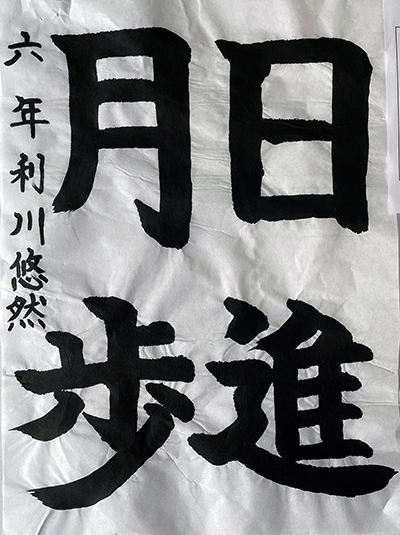 日進
月歩
六年利川悠然